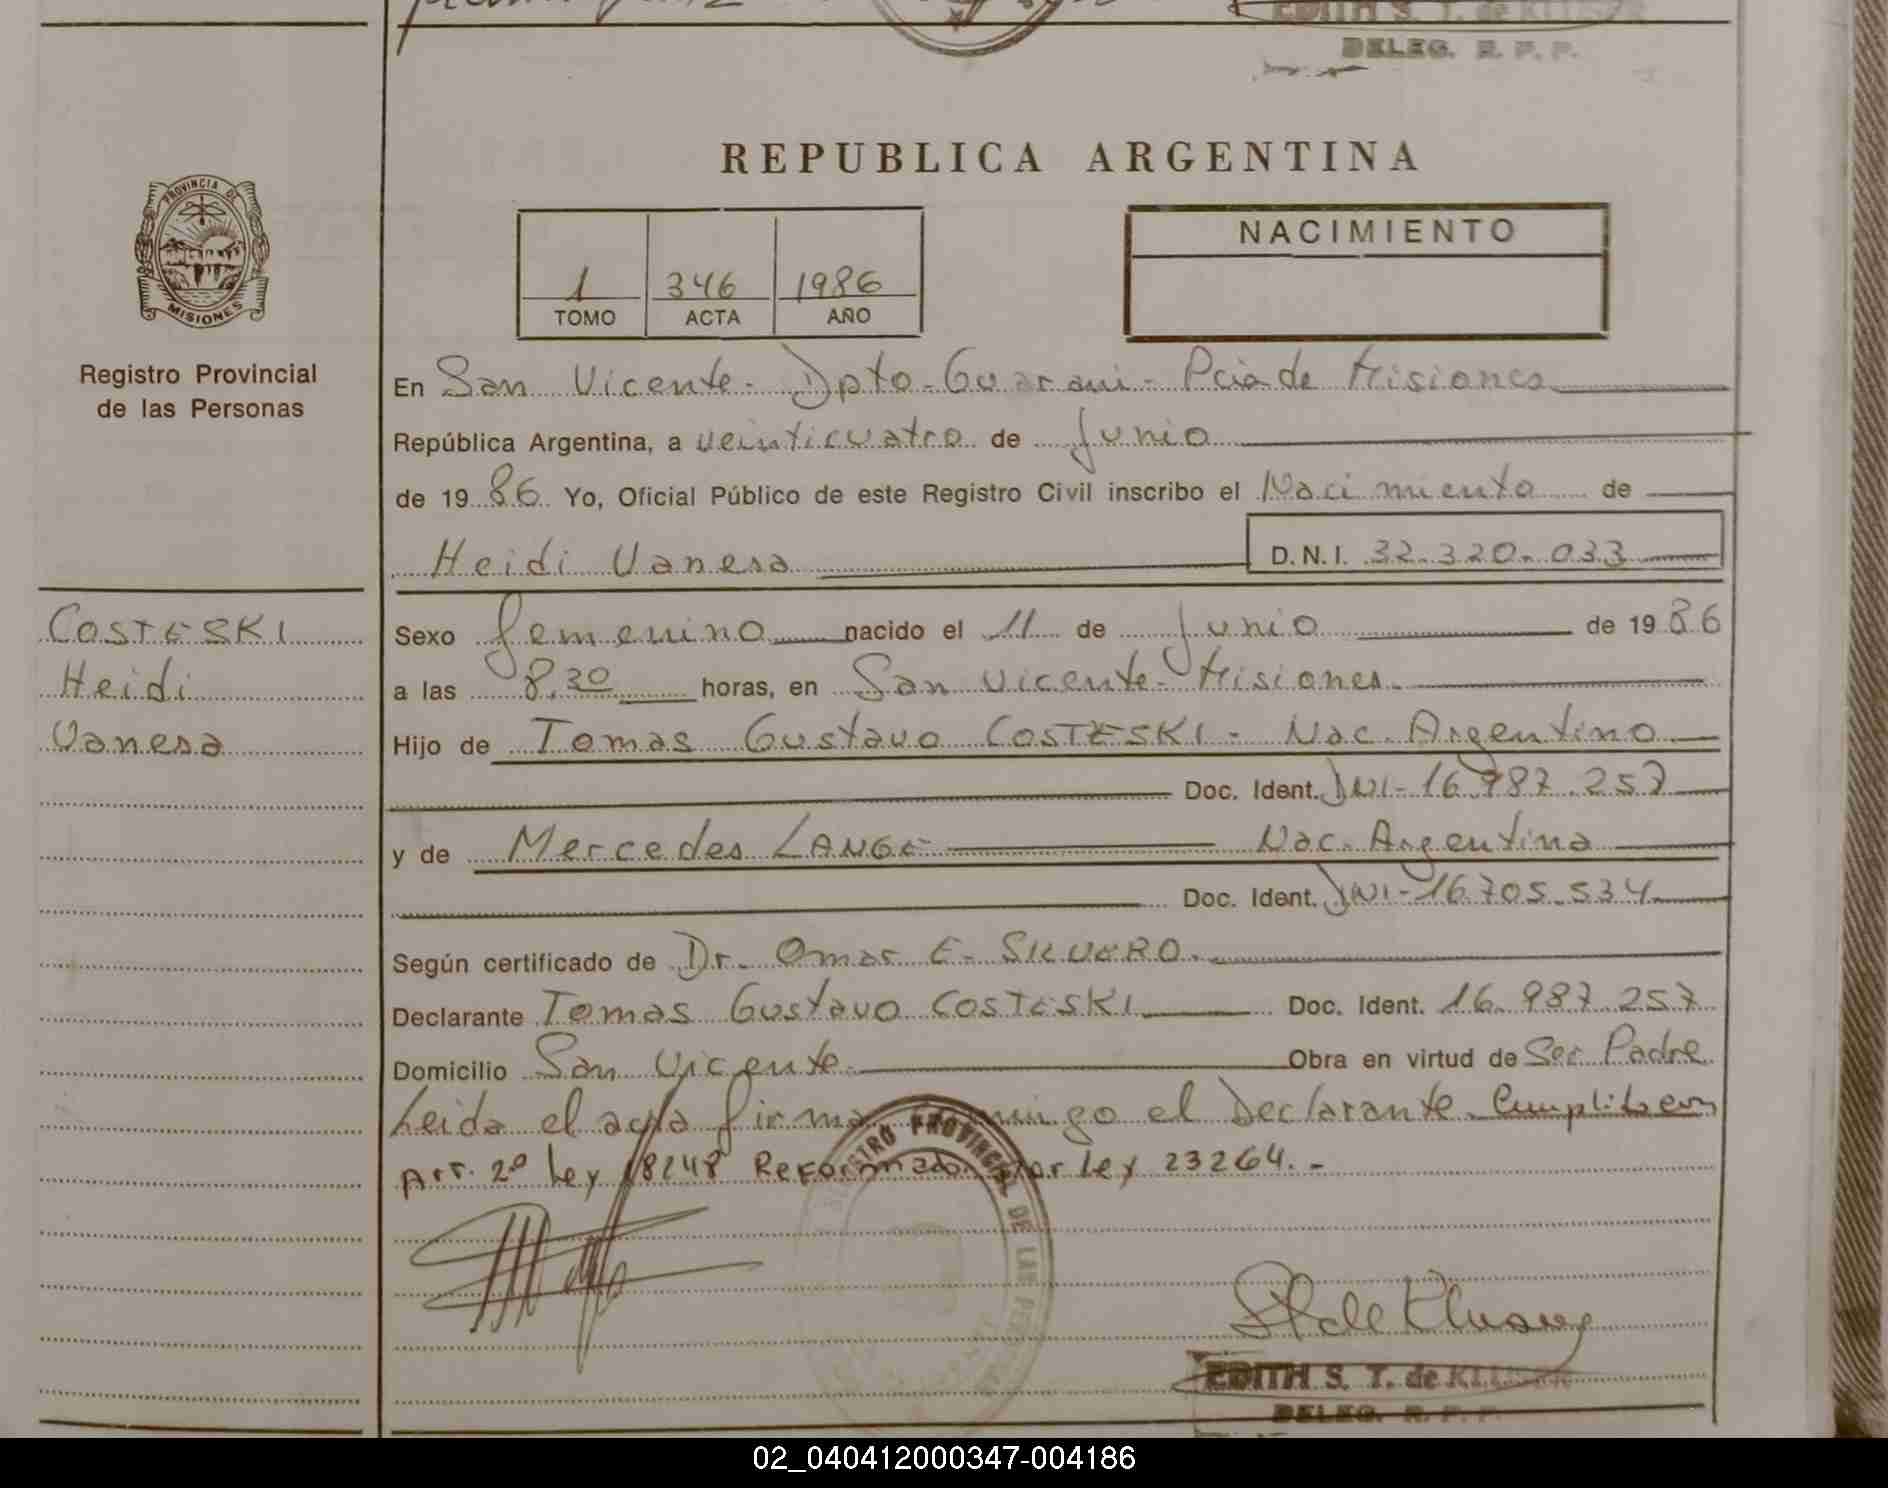 EDITH S. T. de
DELEG. R. P. P.
REPUBLICA ARGENTINA
PROVINCIA DE
MISIONES
Registro Provincial
de las Personas
1 346 1986
TOMO ACTA AÑO
NACIMIENTO
En San Vicente - Dpto - Guarani - Pcia de Misiones
República Argentina, a veinticuatro de Junio
de 19 86 Yo, Oficial Público de este Registro Civil inscribo el Nacimiento de
Heidi Vanesa D.N.I. 32.320.033
COSTESKI
Heidi
Vanesa
Sexo femenino nacido el 11 de Junio de 19 86
a las 8.30 horas, en San Vicente - Misiones
Hijo de Tomas Gustavo COSTESKI - Nac. Argentino
Doc. Ident. DNI - 16.987.257
y de Mercedes LANGE Nac. Argentina
Doc. Ident. DNI - 16.705.534
Según certificado de Dr. Omar E. SILVERO.
Declarante Tomas Gustavo COSTESKI Doc. Ident. 16.987.257
Domicilio San Vicente Obra en virtud de Ser Padre
Leida el acta firma conmigo el Declarante. Cumplib con
Art. 2º Ley 18248 Reformado por Ley 23264. -
REGISTRO PROVINCIAL DE LAS PERSONAS
EDITH S. T. de
DELEG. R. P. P.
02_040412000347-004186